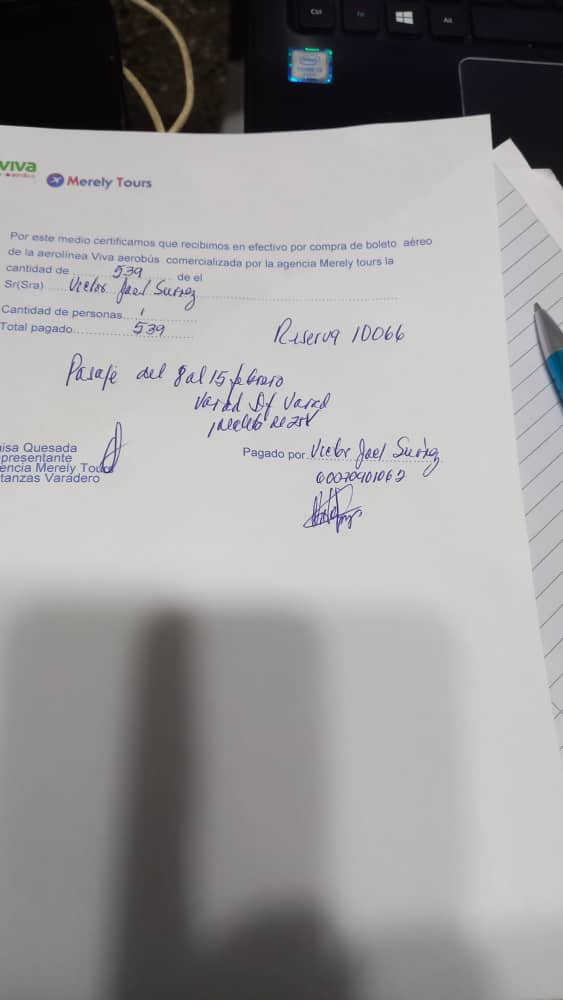 viva
Merely Tours
Por este medio certificamos que recibimos en efectivo por compra de boleto aéreo
de la aerolínea Viva aerobús comercializada por la agencia Merely tours la
cantidad de 539 de el
Sr(Sra) Victor Jael Surez
Cantidad de personas 1
Total pagado 539
Reserva 10066
Pasaje del 8 al 15 febrero
Varad Df Varad
isa Quesada
presentante
encia Merely Tour
tanzas Varadero
Pagado por Victor Jael
Ctrl
Fn
Alt
intel